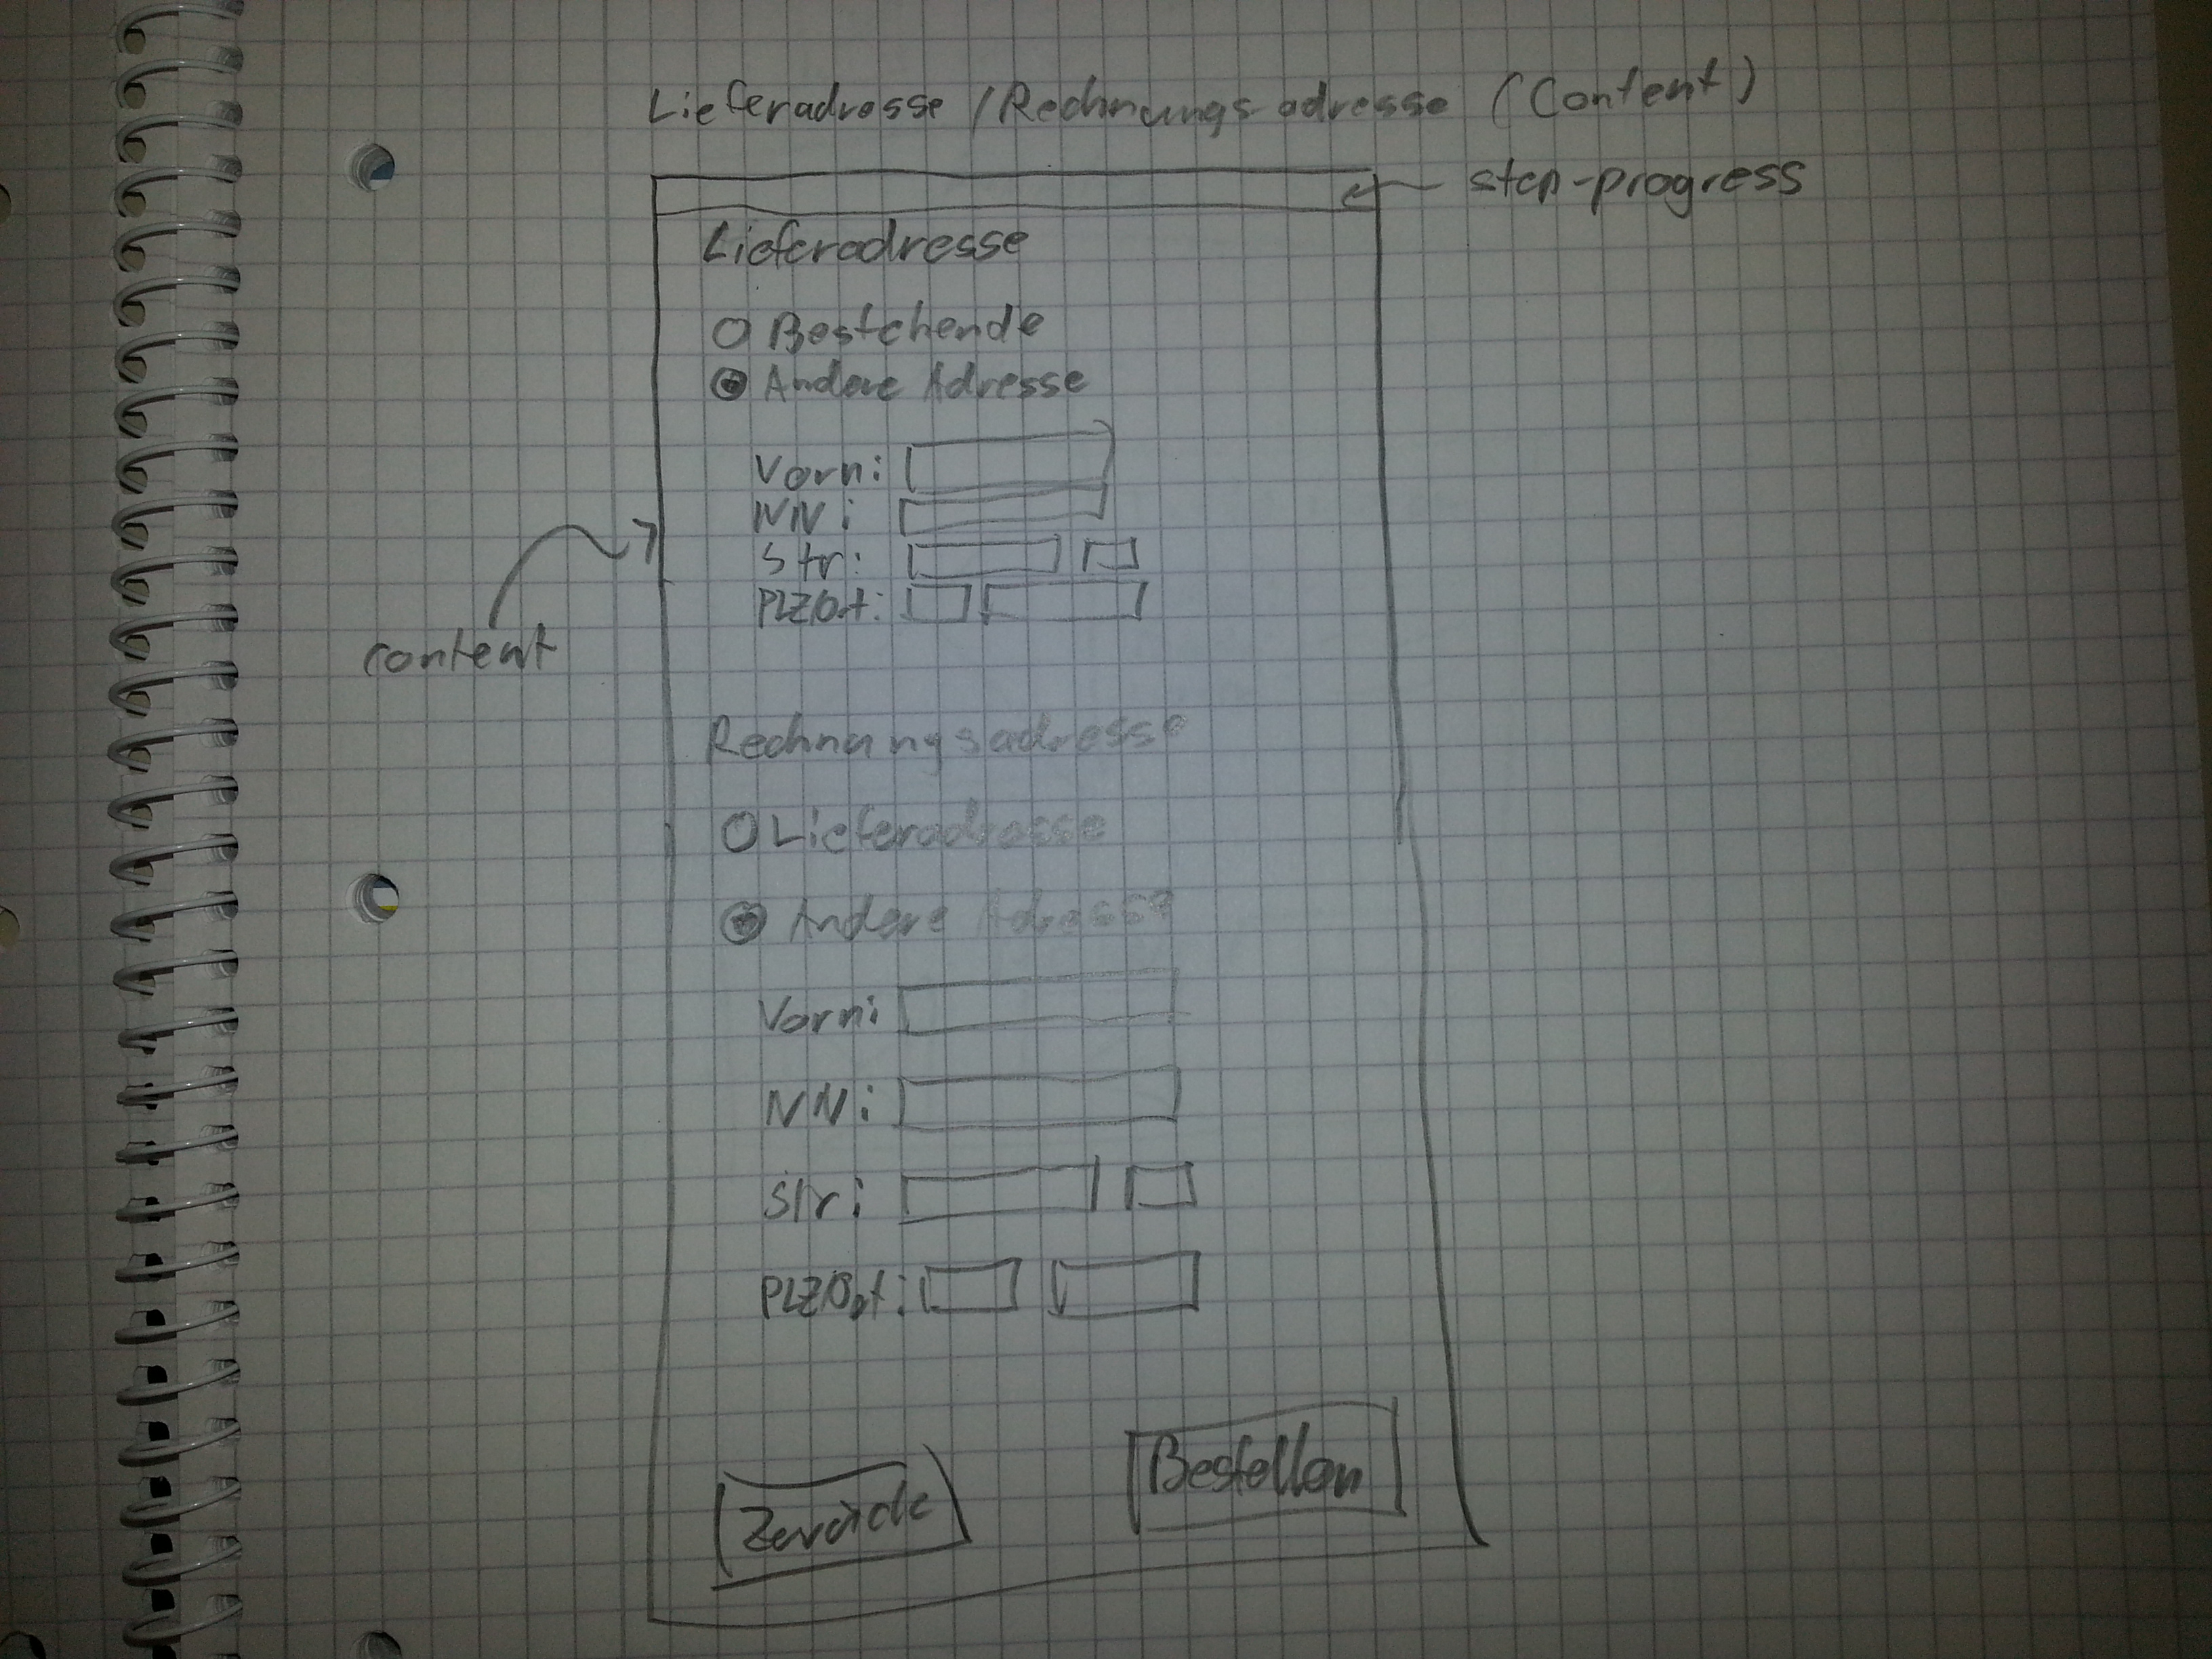 Lieferadresse / Rechnungsadresse (Content)
step-progress
Lieferadresse
Bestehende
Andere Adresse
Vorn:
NN:
Str:
PLZ/Ort:
content
Rechnungsadresse
Lieferadresse
Andere Adresse
Vorn:
NN:
Str:
PLZ/Ort:
Zurück
Bestellen